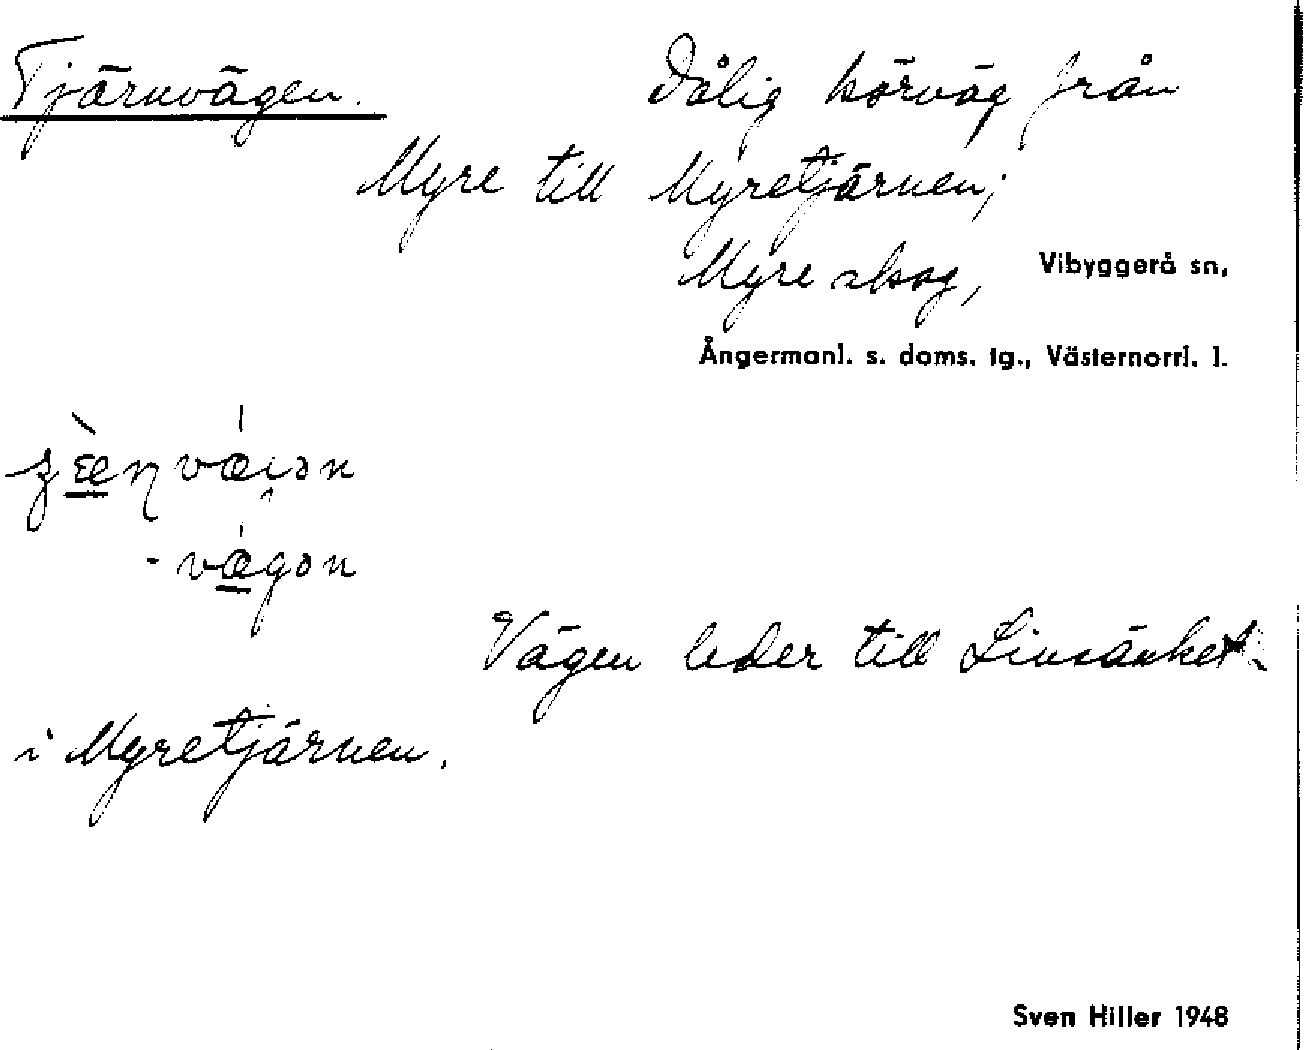 Tjärnvägen. Dålig körväg från
Myre till Myretjärnen;
Myre skog, Vibyggerå sn,
Ångermanl. s. doms. tg., Västernorrl. l.
Vägen leder till Linsänket
i Myretjärnen.
Sven Hiller 1948